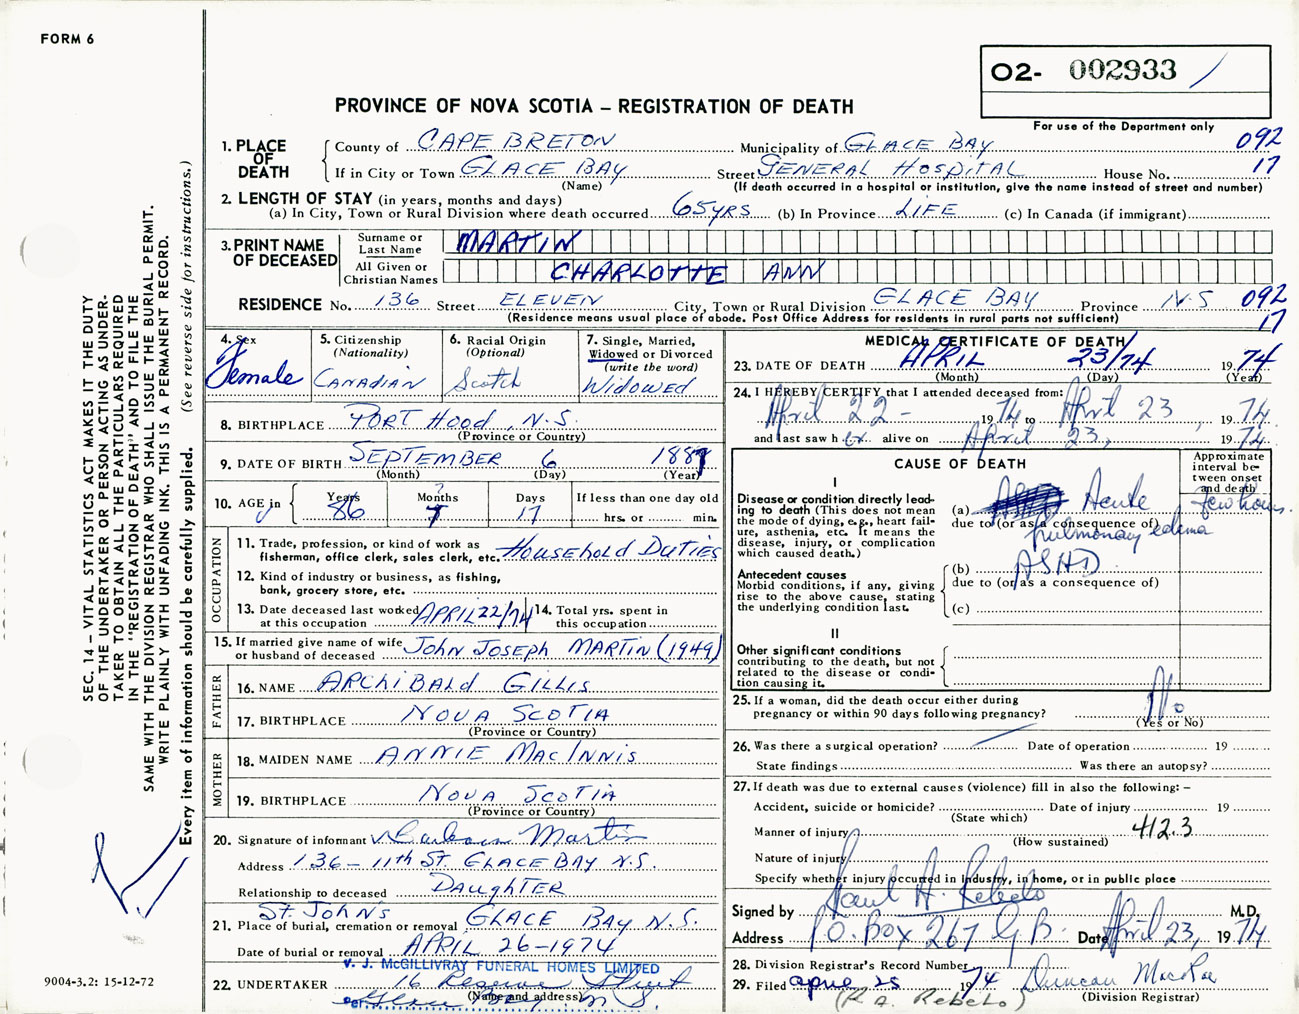 FORM 6
O2- 002933
For use of the Department only
PROVINCE OF NOVA SCOTIA – REGISTRATION OF DEATH
SEC. 14 – VITAL STATISTICS ACT MAKES IT THE DUTY
OF THE UNDERTAKER OR PERSON ACTING AS UNDER-
TAKER TO OBTAIN ALL THE PARTICULARS REQUIRED
IN THE "REGISTRATION OF DEATH" AND TO FILE THE
SAME WITH THE DIVISION REGISTRAR WHO SHALL ISSUE THE BURIAL PERMIT.
WRITE PLAINLY WITH UNFADING INK. THIS IS A PERMANENT RECORD.
Every item of information should be carefully supplied. (See reverse side for instructions.)
1. PLACE OF DEATH
County of CAPE BRETON Municipality of GLACE BAY 092
If in City or Town GLACE BAY Street GENERAL HOSPITAL House No. 17
(Name) (If death occurred in a hospital or institution, give the name instead of street and number)
2. LENGTH OF STAY (in years, months and days)
(a) In City, Town or Rural Division where death occurred 65 YRS (b) In Province LIFE (c) In Canada (if immigrant)
3. PRINT NAME OF DECEASED
Surname or Last Name MARTIN
All Given or Christian Names CHARLOTTE ANN
RESIDENCE No. 136 Street ELEVEN City, Town or Rural Division GLACE BAY Province N.S 092
(Residence means usual place of abode. Post Office Address for residents in rural parts not sufficient) 17
4. Sex Female
5. Citizenship (Nationality) CANADIAN
6. Racial Origin (Optional) Scotch
7. Single, Married, Widowed or Divorced (write the word) WIDOWED
8. BIRTHPLACE PORT HOOD, N.S.
(Province or Country)
9. DATE OF BIRTH SEPTEMBER 6 1887
(Month) (Day) (Year)
10. AGE in Years 86 Months 7 Days 17 If less than one day old
hrs. or min.
OCCUPATION
11. Trade, profession, or kind of work as
fisherman, office clerk, sales clerk, etc. HOUSEHOLD DUTIES
12. Kind of industry or business, as fishing,
bank, grocery store, etc.
13. Date deceased last worked at this occupation APRIL 22/74 14. Total yrs. spent in this occupation
15. If married give name of wife or husband of deceased JOHN JOSEPH MARTIN (1949)
FATHER
16. NAME ARCHIBALD GILLIS
17. BIRTHPLACE NOVA SCOTIA
(Province or Country)
MOTHER
18. MAIDEN NAME ANNIE MACINNIS
19. BIRTHPLACE NOVA SCOTIA
(Province or Country)
20. Signature of informant Martin
Address 136 – 11th ST. GLACE BAY N.S.
Relationship to deceased DAUGHTER
ST. JOHN'S
21. Place of burial, cremation or removal GLACE BAY N.S.
Date of burial or removal APRIL 26-1974
V. J. McGILLIVRAY FUNERAL HOMES LIMITED
22. UNDERTAKER 16 Reserve Street
(Name and address)
Per. Glace Bay N S.
9004-3.2: 15-12-72
MEDICAL CERTIFICATE OF DEATH
23. DATE OF DEATH APRIL 23/74 1974
(Month) (Day) (Year)
24. I HEREBY CERTIFY that I attended deceased from:
April 22 – 1974 to April 23, 1974
and last saw her alive on April 23, 1974
CAUSE OF DEATH
Approximate interval between onset and death
I
Disease or condition directly lead-
ing to death (This does not mean
the mode of dying, e.g., heart fail-
ure, asthenia, etc. It means the
disease, injury, or complication
which caused death.)
(a) Acute few hours.
due to (or as a consequence of)
pulmonary edema
Antecedent causes
Morbid conditions, if any, giving
rise to the above cause, stating
the underlying condition last.
(b) ASHD
due to (or as a consequence of)
(c)
II
Other significant conditions
contributing to the death, but not
related to the disease or condi-
tion causing it.
25. If a woman, did the death occur either during
pregnancy or within 90 days following pregnancy? No
(Yes or No)
26. Was there a surgical operation? Date of operation 19
State findings Was there an autopsy?
27. If death was due to external causes (violence) fill in also the following: –
Accident, suicide or homicide? Date of injury 19
(State which)
Manner of injury 412.3
(How sustained)
Nature of injury
Specify whether injury occurred in Industry, in home, or in public place
Signed by Paul A. Rebelo M.D.
Address P.O. Box 267 G.B. Date April 23, 1974
28. Division Registrar's Record Number
29. Filed april 25 1974 Duncan MacRae
(R. A. Rebelo) (Division Registrar)